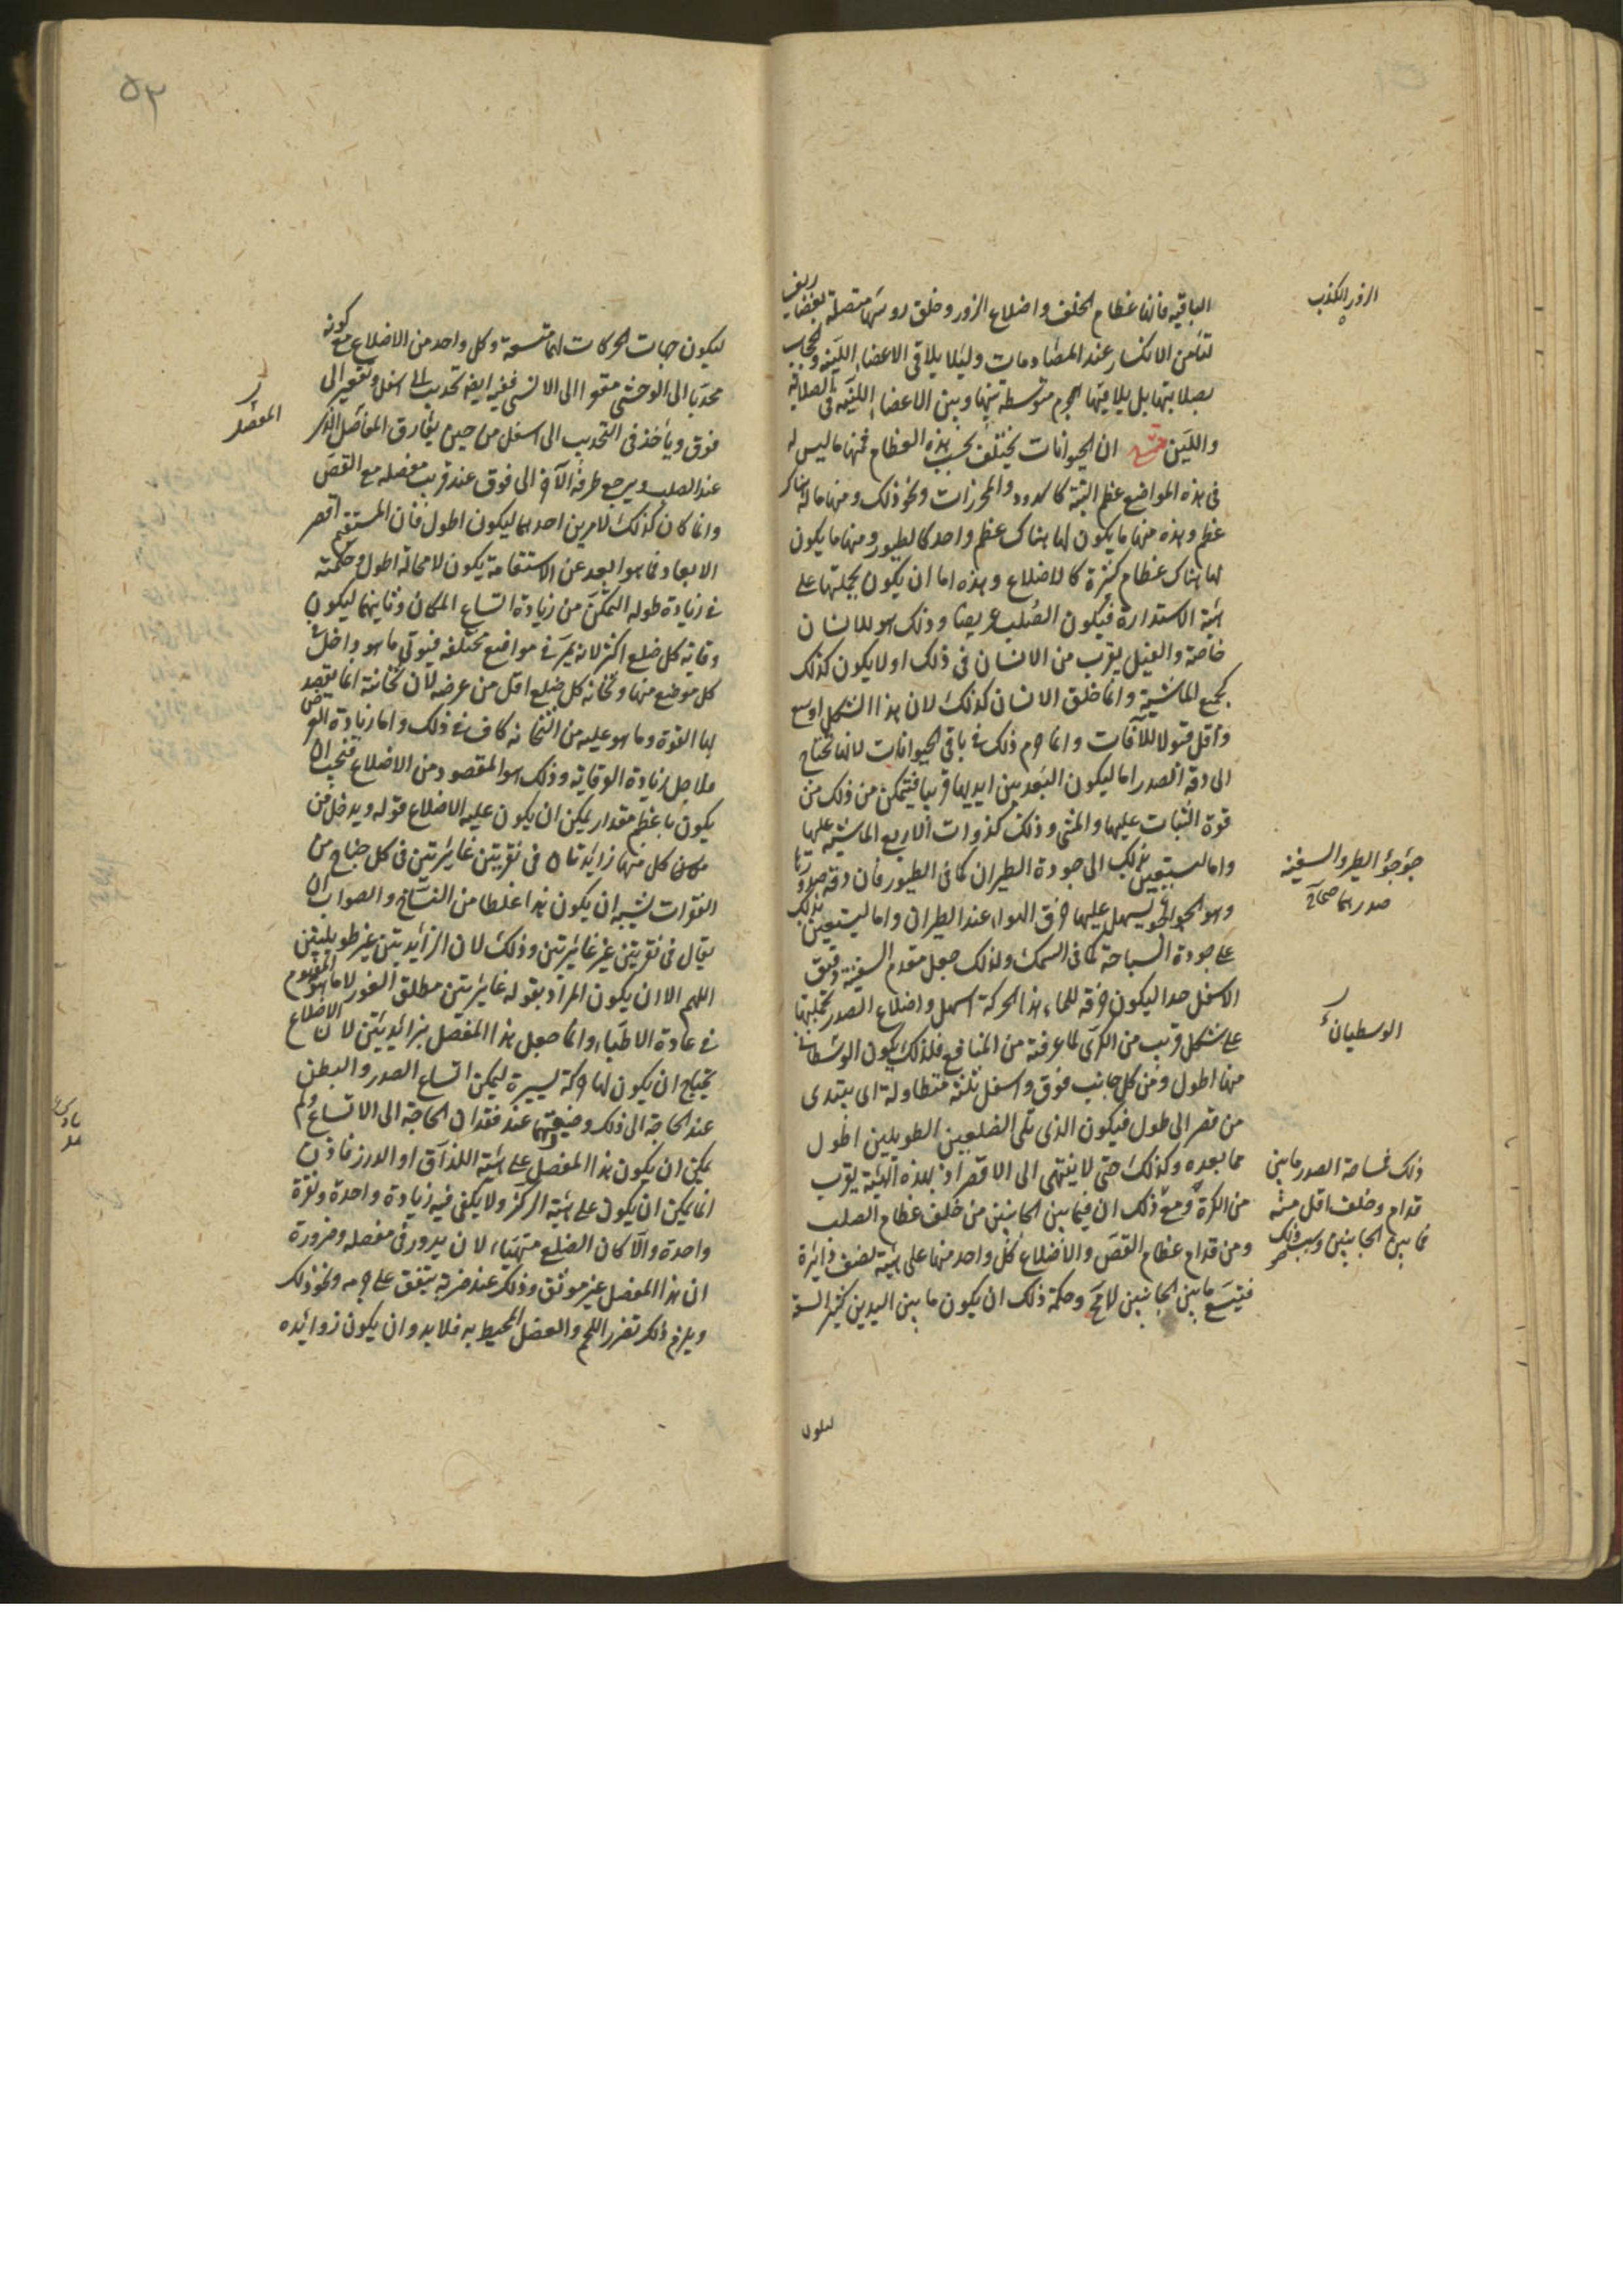 الباقيه فانها عظام الخلف واضلاع الزور وخلق روسها متصلة بغضاريف
لتأمن الانكسار عند المصادمات وليلا يلاقي الاعضاء اللينه والحجاب
بصلابتها بل يلاقيها بجرم متوسطة بينها وبين الاعضاء اللينه في الصلابة
واللين ان الحيوانات يختلف بحسب هذه العظام فمنها ما ليس له
في هذه المواضع عظم البتة كالدود والمحرزات ونحو ذلك ومنها ما له هناك
عظم وهذه منها ما يكون لها هناك عظم واحد كالطيور ومنها ما يكون
لها هناك عظام كثيرة كالاضلاع وهذه اما ان يكون بجملتها على
هيئة الاستدارة فيكون الصلب عريضا وذلك هو للانسان
خاصة والفيل يقرب من الانسان في ذلك او لا يكون كذلك
كجميع الماشية وانما خلق الانسان كذلك لان هذا الشكل اوسع
واقل قبولا للآفات وانما حرم ذلك في باقي الحيوانات لانها تحتاج
الى دقة الصدر اما ليكون البعد بين ايديها قريبا فيتمكن من ذلك من
قوة الثبات عليها والمشي وذلك كذوات الاربع الماشية عليها
واما ليستعين بذلك الى جودة الطيران كما في الطيور فان دقة صدورها
وهو الجؤجؤ يسهل عليها خرق الهواء عند الطيران واما ليستعين بذلك
على جودة السباحة كما في السمك ولذلك جعل مقدم السفينة دقيق
الاسفل جدا ليكون خرقه للماء بهذا الحركة اسهل واضلاع الصدر بجملتها
على شكل قريب من الكرى لما عرفته من المنافع فلذلك يكون الوسطاني
منها اطول ومن كل جانب فوق واسفل ثلثة متطاولة اى يبتدى
من قصر الى طول فيكون الذى يلى الضلعين الطويلين اطول
مما بعده وكذلك حتى لا ينتهى الى الاقصر اذ بهذه الهيئة يقرب
من الكرة ومع ذلك ان فيما بين الجانبين من خلف عظام الصلب
ومن قدام عظام القص والاضلاع كل واحد منها على هيئة نصف دايرة
فيتسع ما بين الجانبين لا مح وحكمة ذلك ان يكون ما بين اليدين كثير السعة
ليكون
الزور الكذب
جؤجؤ الطير والسفينه
صدرهما صحاح
الوسطيان
ذلك فساحة الصدر ما بين
قدام وخلف اقل منه
فما بين الجانبين وسبب ذلك
٥٣
ليكون جهات الحركات لها متسعة وكل واحد من الاضلاع مع كونه
محدبا الى الوحشى مقعرا الى الانسى ففيه ايضا تحديب الى اسفل وتقعير الى
فوق ويأخذ في التحديب الى اسفل من حين يفارق المفاصل الذى
عند الصلب ويرجع طرفه الآخر الى فوق عند قرب مفصله مع القص
وانما كان كذلك لامرين احدهما ليكون اطول فان المستقيم اقصر
الابعاد فما هو ابعد عن الاستقامة يكون لا محالة اطول وحكمته
في زيادة طوله التمكن من زيادة اتساع المكان وثانيهما ليكون
وقاية كل ضلع اكثر لانه يمر في مواضع مختلفه فيوقى ما هو داخل
كل موضع منها وثخانه كل ضلع اقل من عرضه لان ثخانته انما يقصد
لها القوة وما هو عليه من الثخانه كاف في ذلك واما زيادة العرض
فلاجل زيادة الوقاية وذلك هو المقصود من الاضلاع فيجب ان
يكون باعظم مقدار يمكن ان يكون عليه الاضلاع قوله ويدخل من
مكان كل منها زائدتان في نقرتين غايرتين في كل جناح من
الفقرات يشبه ان يكون هذا غلطا من النساخ والصواب ان
يقال في نقرتين غير غايرتين وذلك لان الزايدتين غير طويلتين
اللهم الا ان يكون المراد بقوله غايرتين مطلق الغور لا ما هو المفهوم
في عادة الاطباء وانما جعل هذا المفصل بزائدتين لان الاضلاع
يحتاج ان يكون لها حركة يسيرة ليمكن اتساع الصدر والبطن
عند الحاجة الى ذلك وضيقهما عند فقدان الحاجة الى الاتساع ولم
يمكن ان يكون هذا المفصل على هيئة اللزاق او الدرز فاذن
انما يمكن ان يكون على هيئة الركز ولا يكفى فيه زيادة واحدة ونقرة
واحدة والا كان الضلع متهياء لان يدور في مفصله وضرورة
ان هذا المفصل غير موثق وذلك عند ضربة يتفق على جرمه ونحو ذلك
ويلزم ذلك تضرر اللحم والعضل المحيط به فلا بد وان يكون زوائده
المفصل